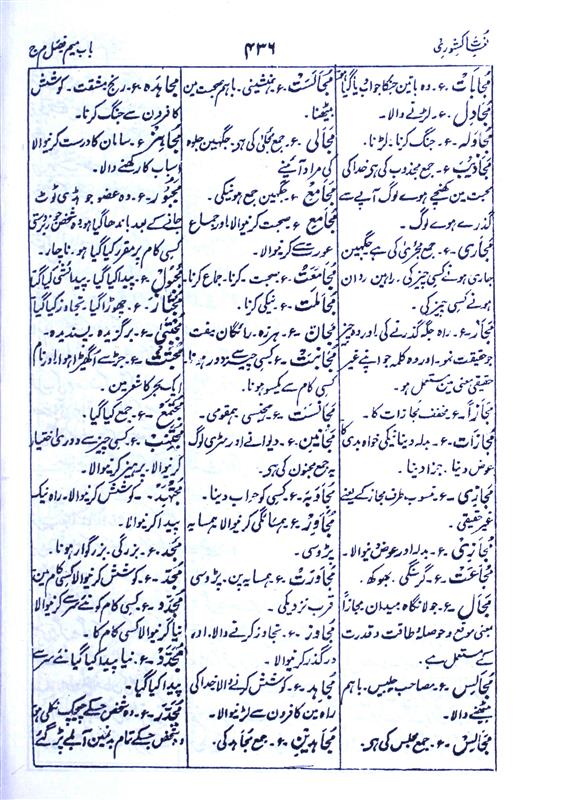 لغت کشوری
۴۳۶
باب میم فصل م ج
مجابات ۔ ع۔ وہ باتین جنکا جواب پا گیا ہو
مجادل ۔ ع۔ لڑنے والا۔
مجاولہ ۔ ع۔ جنگ کرنا۔ لڑنا۔
مجاذیب ۔ ع۔ جمع مجذوب کی ہی خدا کی
محبت مین کھنچے ہوے لوگ آپے سے
گذرے ہوے لوگ۔
مجاری ۔ ع۔ جمع مجریٰ کی ہے جگہین
جاری ہونے کسی چیز کی۔ راہین روان
ہونے کسی چیز کی۔
مجاز ۔ ع۔ راہ جگہ گذرنے کی اور وہ چیز
جو حقیقت نہو۔ اور وہ کلمہ جو اپنے غیر
حقیقی معنی مین مستعمل ہو۔
مجازاً ۔ ع۔ مخفف مجازات کا۔
مجازات ۔ ع۔ بدلہ دینا نیکی خواہ بدی کا
عوض دینا۔ جزا دینا۔
مجازی ۔ ع۔ منسوب طرف مجاز کے یعنے
غیر حقیقی۔
مجازی ۔ ع۔ بدلہ اور عوض دینے والا۔
مجاعت ۔ ع۔ گرسنگی۔ بھوکھ۔
مجال ۔ ع۔ جولانگاہ میدان مجازاً
بمعنی موقع و حوصلہ و طاقت و قدرت
کے مستعمل ہے۔
مجالس ۔ ع۔ مصاحب جلیس۔ باہم
بیٹھنے والا۔
مجالس ۔ ع۔ جمع مجلس کی ہی۔
مجالست ۔ ع۔ ہمنشینی۔ باہم صحبت مین
بیٹھنا۔
مجالی ۔ ع۔ جمع مجلیٰ کی ہی۔ جگہین جلوہ
کی مراد آئینے
مجامع ۔ ع۔ جگہین جمع ہونیکی۔
مجامع ۔ ع۔ صحبت کرنیوالا اور جماع
عورت سے کرنیوالا۔
مجامعت ۔ ع۔ صحبت کرنا۔ جماع کرنا۔
مجاملت ۔ ع۔ نیکی کرنا۔
مجان ۔ ع۔ ہرزہ۔ رائگان مفت
مجانبت ۔ ع۔ کسی چیز سے دور ہونا
کسی کام سے یکسو ہونا۔
مجانست ۔ ع۔ ہمجنسی ہمقومی۔
مجانین ۔ ع۔ دیوانے اور سڑی لوگ
یہ جمع مجنون کی ہی۔
مجاوبہ ۔ ع۔ کسی کو جواب دینا۔
مجاور ۔ ع۔ ہمسائگی کرنیوالا ہمسایہ
پڑوسی۔
مجاورت ۔ ع۔ ہمسایہ پن۔ پڑوسی
قرب نزدیکی۔
مجاوز ۔ ع۔ تجاوز کرنے والا۔ اور
درگذر کرنیوالا۔
مجاہد ۔ ع۔ کوشش کرنے والا خدا کی
راہ مین کافرون سے لڑنیوالا۔
مجاہدین ۔ ع۔ جمع مجاہد کی۔
مجاہدہ ۔ ع۔ رنج مشقت۔ کوشش
کافرون سے جنگ کرنا۔
مجاہز ۔ ع۔ سامان کا درست کرنیوالا
اسباب کا رکھنے والا۔
مجبور ۔ ع۔ وہ عضو جو ہڈی ٹوٹ
جانے کے بعد باندھا گیا ہو وہ شخص جو زبردستی
کسی کام پر مقرر کیا گیا ہو۔ ناچار۔
مجبول ۔ ع۔ پیدا کیا گیا۔ پیدائشی کیا گیا
مجتاز ۔ ع۔ چھوڑا گیا۔ تجاوز کیا گیا
مجتبیٰ ۔ ع۔ برگزیدہ۔ پسندیدہ۔
مجتث ۔ ع۔ جڑ سے اکھیڑا ہوا اور نام
ایک بحر کا شعر مین۔
مجتمع ۔ ع۔ جمع کیا گیا۔
مجتنب ۔ ع۔ کسی چیز سے دوری اختیار
کرنیوالا۔ پرہیز کرنیوالا۔
مجتہد ۔ ع۔ کوشش کرنیوالا۔ راہ نیک
پیدا کرنیوالا۔
مجد ۔ ع۔ بزرگی۔ بزرگوار ہونا۔
مجد ۔ ع۔ کوشش کرنیوالا کسی کام مین
مجدد ۔ ع۔ کسی کام کو نئے سرے کرنیوالا
نیا کرنیوالا کسی کام کا۔
مجدد ۔ ع۔ نیا پیدا کیا گیا نئے سرے
پیدا کیا گیا۔
مجدر ۔ ع۔ وہ شخص جسکے چیچک نکلی ہو
جسکے تمام بدن مین آبلے پڑ گئے